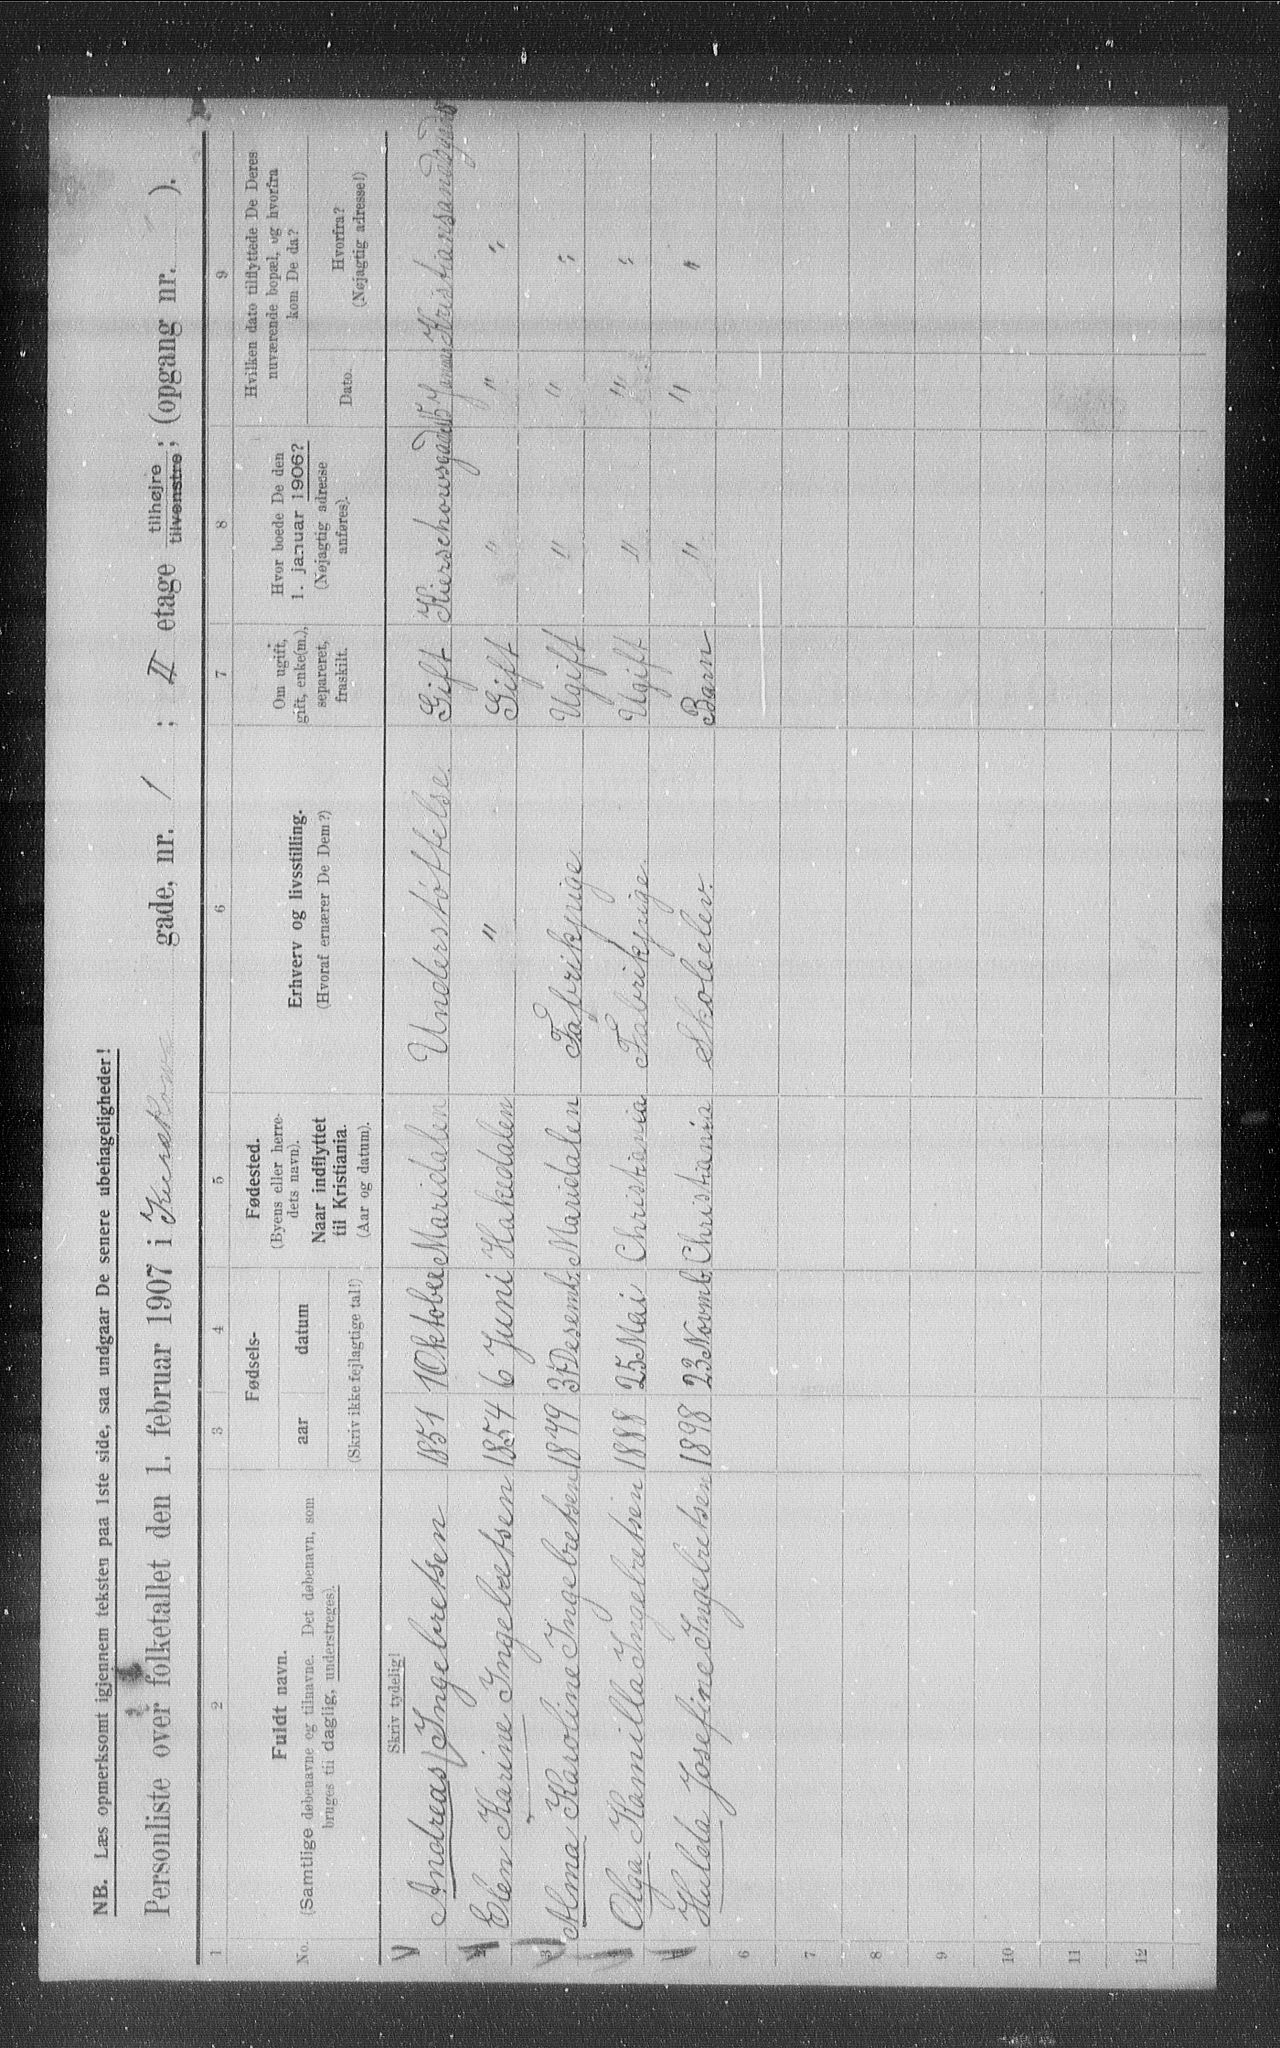 NB. Læs opmerksomt igjennem teksten paa 1ste side, saa undgaar De senere ubehageligheder!
Personliste over folketallet den 1. februar 1907 i gade, nr. 1 ; II etage tilhøjre tilvenstre ; (opgang nr. ).
1 2 3 4 5 6 7 8 9
No.
Fuldt navn.
(Samtlige døbenavne og tilnavne. Det døbenavn, som
bruges til daglig, understreges).
Fødsels-
aar datum
(Skriv ikke fejlagtige tal!)
Fødested.
(Byens eller herre-
dets navn).
Naar indflyttet
til Kristiania.
(Aar og datum).
Erhverv og livsstilling.
(Hvoraf ernærer De Dem?)
Om ugift,
gift, enke(m.),
separeret,
fraskilt.
Hvor boede De den
1. januar 1906?
(Nøjagtig adresse
anføres).
Hvilken dato tilflyttede De Deres
nuværende bopæl, og hvorfra
kom De da?
Dato.
Hvorfra?
(Nøjagtig adresse!)
Skriv tydelig!
Andreas Ingebretsen 1851 1 Oktober Maridalen Understøttelse. Gift
2 Elen Karine Ingebretsen 1854 6 Juni Hakedalen " Gift " " "
3 Alma Karoline Ingebretsen 1879 31 Desemb. Maridalen Fabrikpige. Ugift " " "
Olga Kamilla Ingebretsen 1888 25 Mai Christiania Fabrikpige. Ugift " " "
Hulda Josefine Ingebretsen 1898 23 Novmb. Christiania Skoleelev. Barn " " "
6
7
8
9
10
11
12